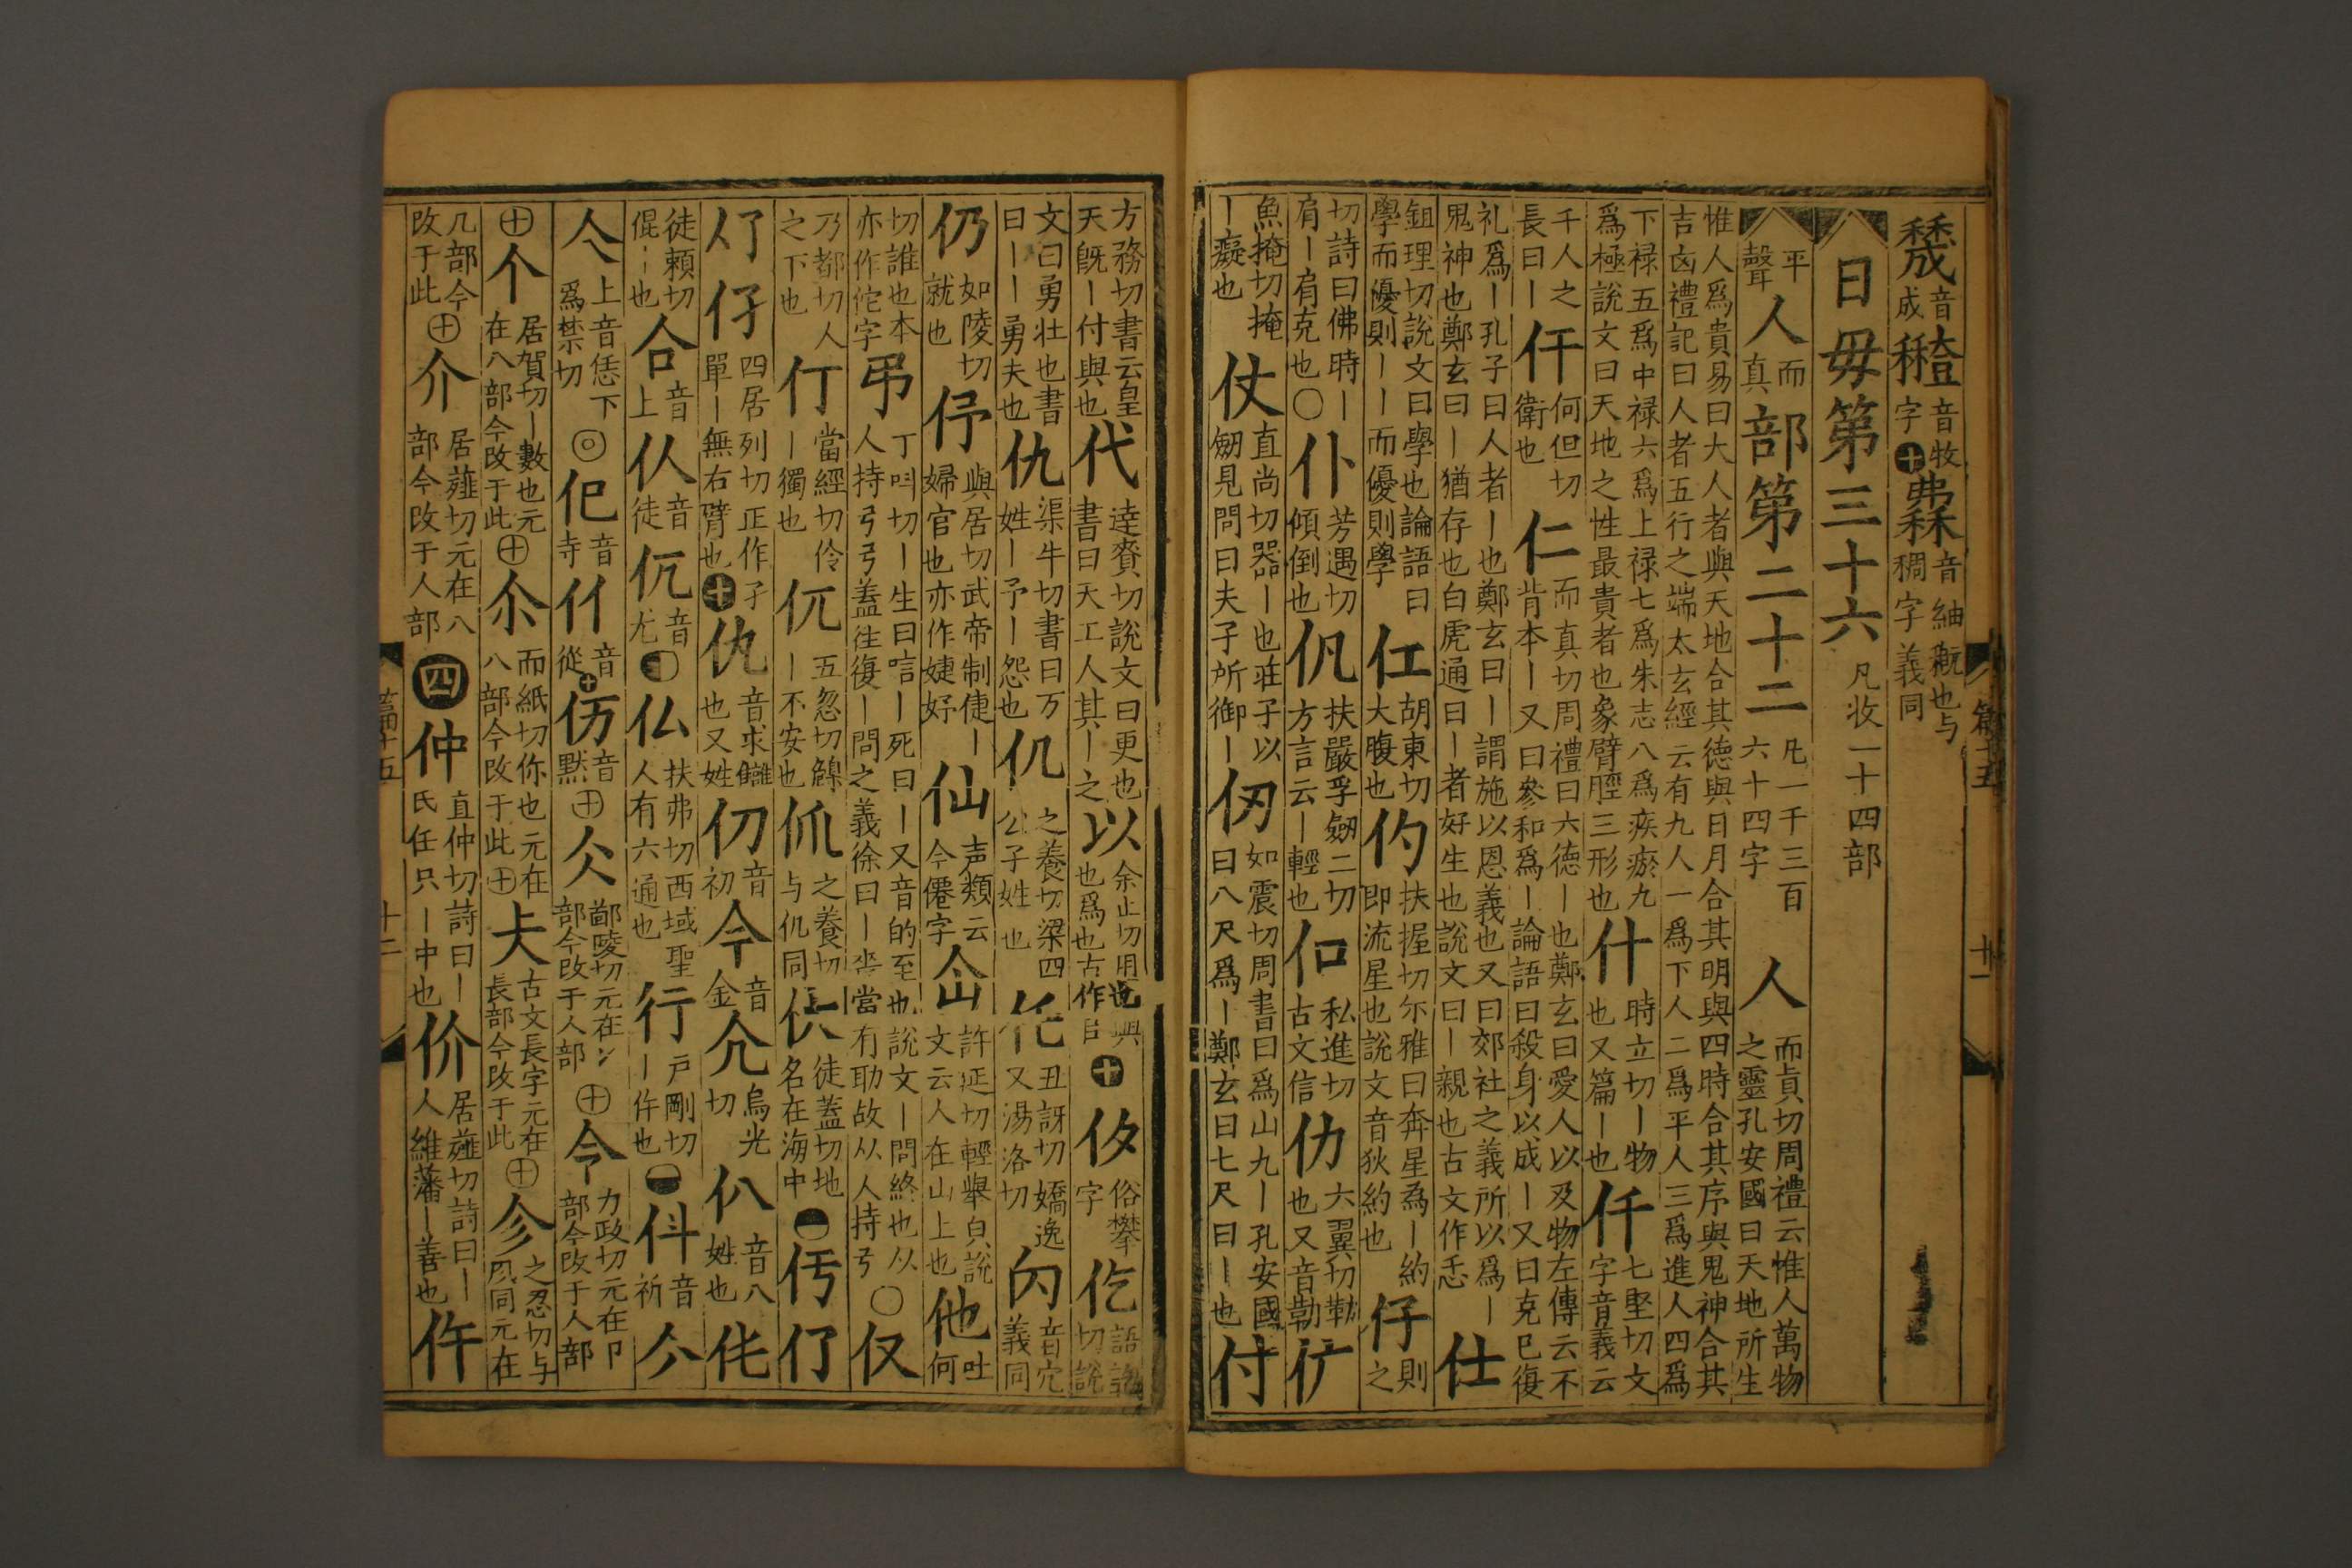 音成 音牧字 音紬穊也与稠字義同
日毋第三十六 凡收一十四部
平聲 人 而真 部第二十二 凡一千三百六十四字 人 而真切周禮云惟人萬物之靈孔安國曰天地所生
惟人爲貴易曰大人者與天地合其德與日月合其明與四時合其序與鬼神合其吉凶禮記曰人者五行之端太玄經云有九人一爲下人二爲平人三爲進人四爲
下禄五爲中禄六爲上禄七爲朱志八爲疾瘀九爲極說文曰天地之性最貴者也象臂脛三形也 什 時立切丨物也又篇丨也 仟 七堅切文字音義云
千人之長曰丨 仠 何但切衛也 仁 而真切周禮曰六德丨也鄭玄曰愛人以及物左傳云不背本丨又曰參和爲丨論語曰殺身以成丨又曰克已復
礼爲丨孔子曰人者丨也鄭玄曰丨謂施以恩義也又曰郊社之義所以爲丨鬼神也鄭玄曰丨猶存也白虎通曰丨者好生也說文曰丨親也古文作忎 仕
鉏理切說文曰學也論語曰學而優則丨丨而優則學 仜 胡東切大腹也 仢 扶握切尓雅曰奔星爲丨約即流星也說文音狄約也 仔 則之
切詩曰佛時丨肩丨肩克也〇 仆 芳遇切傾倒也 仉 扶嚴孚劒二切方言云丨輕也 㐰 私進切古文信 仂 六翼切勒也又音勒
魚掩切掩丨癡也 仗 直尚切器丨也莊子以劒見問曰夫子所御丨 仞 如震切周書曰爲山九丨孔安國曰八尺爲丨鄭玄曰七尺曰丨也 付
方務切書云皇天旣丨付與也 代 達賚切說文曰更也書曰天工人其丨之 以 余止切用也與也爲也古作㠯 俗攀字 仡 語訖切說
文曰勇壯也書曰丨丨勇夫也 仇 渠牛切書曰万姓丨予丨怨也 仉 之養切梁四公子姓也 仛 丑訝切嬌逸又湯洛切 音宂義同
仍 如陵切就也 伃 與居切武帝制倢丨婦官也亦作婕妤 仙 声類云今僊字 仚 許延切輕舉皃說文云人在山上也 他 吐何
切誰也本亦作佗字 弔 丁叫切丨生曰唁丨死曰丨又音的至也說文丨問終也从人持弓弓蓋往復丨問之義徐曰丨喪當有助故从人持弓〇 仅
乃都切人之下也 仃 當經切伶丨獨也 㐳 五忽切鯓丨不安也 㐴 之養切与仉同 㐲 徒蓋切地名在海中
四居列切正作孑單丨無右臂也 仇 音求讎也又姓 仞 音初 今 音金 烏光切 仈 音八姓也
徒頼切倱丨也 合 音上 仧 音徒 㐳 音尤 仏 扶弗切西域聖人有六通也 行 戸剛切丨仵也 音祈
上音恁下爲禁切 音寺 音從 音黙 鄙陵切元在冫部今改于人部 令 力政切元在卩部今改于人部
个 居賀切丨數也元在八部今改于此 尒 而紙切你也元在八部今改于此 古文長字元在長部今改于此 㐱 之忍切与鬒同元在
几部今改于此 介 居薤切元在八部今改于人部 四 仲 直仲切詩曰丨氏任只丨中也 价 居薤切詩曰丨人維藩丨善也 仵
篇十五 十一
篇十五 十二